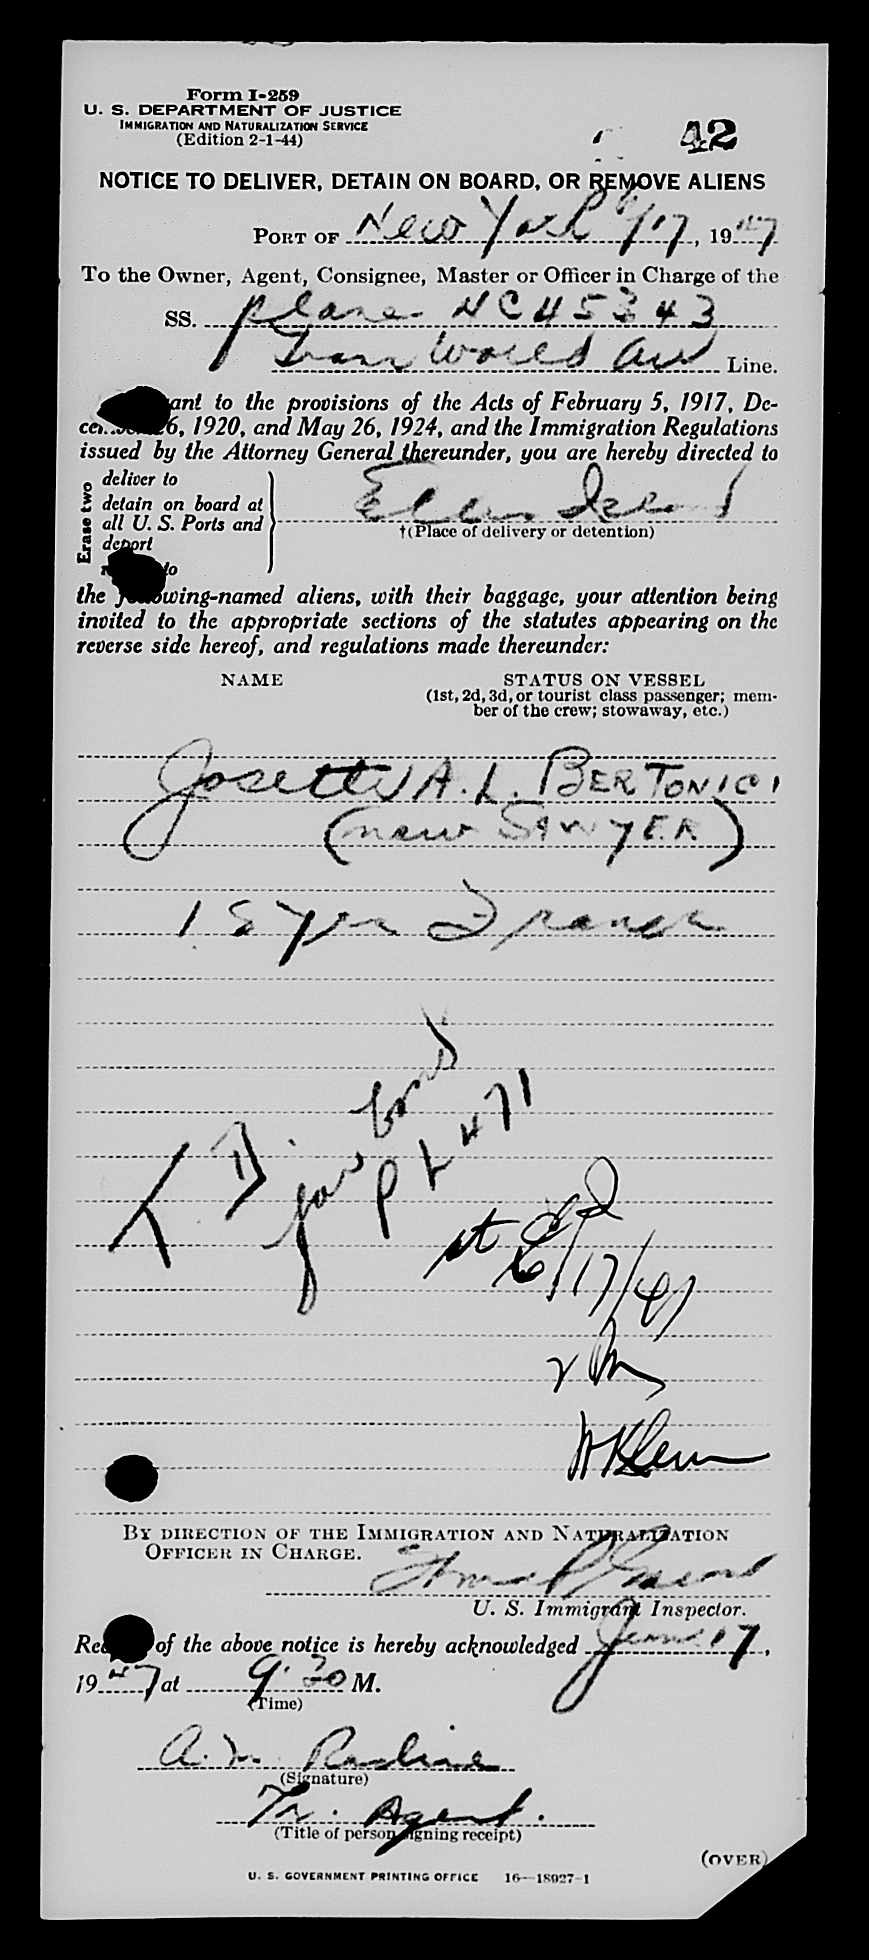 Form I-259
U. S. DEPARTMENT OF JUSTICE
IMMIGRATION AND NATURALIZATION SERVICE
(Edition 2-1-44)
42
NOTICE TO DELIVER, DETAIN ON BOARD, OR REMOVE ALIENS
PORT OF New York 6/17, 1947
To the Owner, Agent, Consignee, Master or Officer in Charge of the
SS. plane NC45343
Trans World Air Line.
ant to the provisions of the Acts of February 5, 1917, De-
6, 1920, and May 26, 1924, and the Immigration Regulations
issued by the Attorney General thereunder, you are hereby directed to
Erase two
deliver to
detain on board at
all U. S. Ports and
deport
to
Ellis Island
†(Place of delivery or detention)
the following-named aliens, with their baggage, your attention being
invited to the appropriate sections of the statutes appearing on the
reverse side hereof, and regulations made thereunder:
NAME
STATUS ON VESSEL
(1st, 2d, 3d, or tourist class passenger; mem-
ber of the crew; stowaway, etc.)
Josette A. L. BERTONICI
(now SAWYER)
18 yrs French
T. D.
for bond
PL 471
6/17/47
W Klein
BY DIRECTION OF THE IMMIGRATION AND NATURALIZATION
OFFICER IN CHARGE.
U. S. Immigrant Inspector.
of the above notice is hereby acknowledged June 17,
1947 at 9:30 M.
(Time)
A. M.
(Signature)
Tr. Agent.
(Title of person signing receipt)
(OVER)
U. S. GOVERNMENT PRINTING OFFICE 16—18927-1